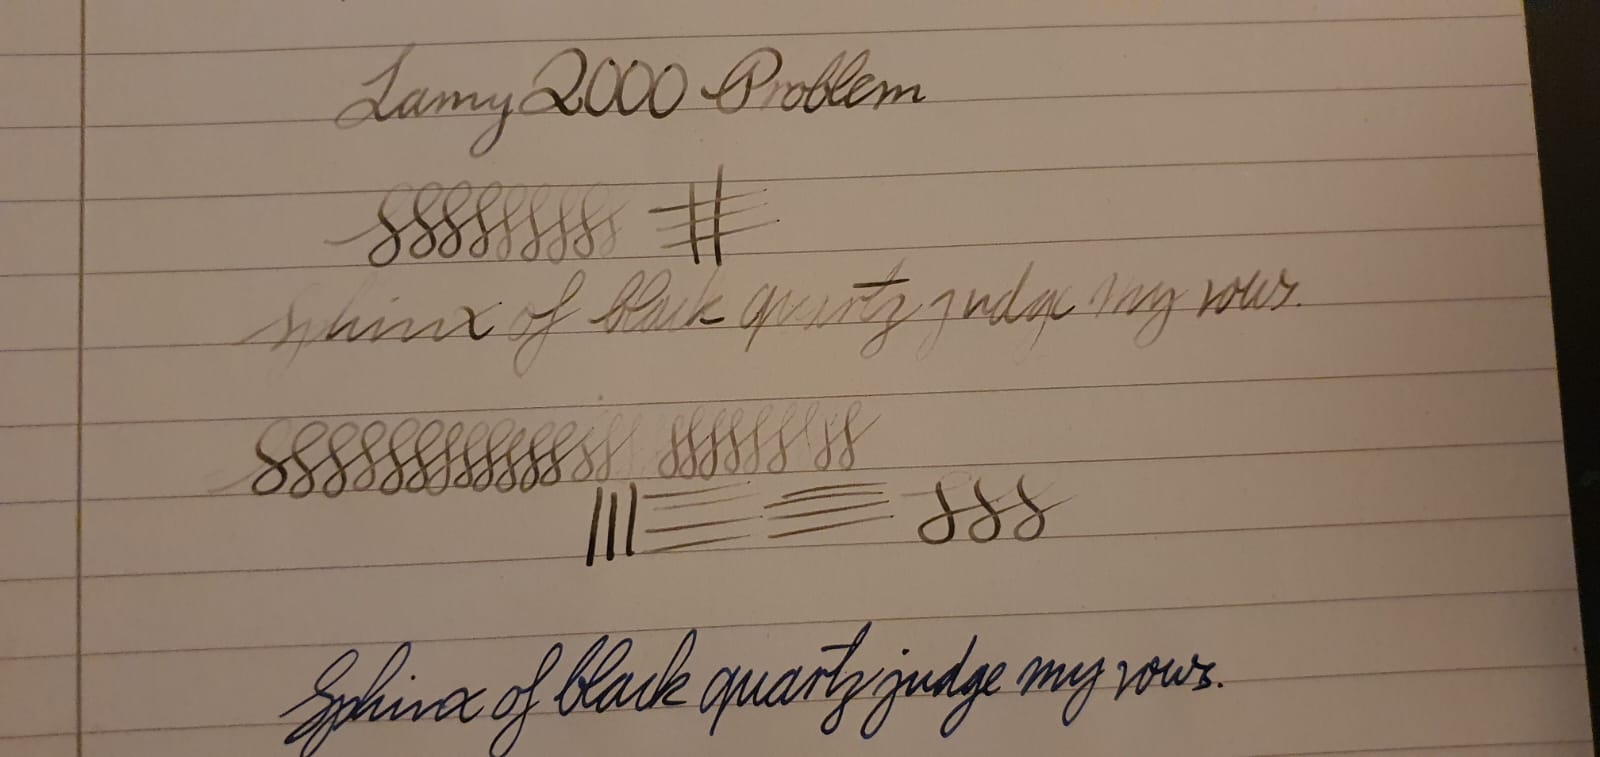 Lamy 2000 Problem
Sphinx of black quartz judge my vows.
Sphinx of black quartz judge my vows.